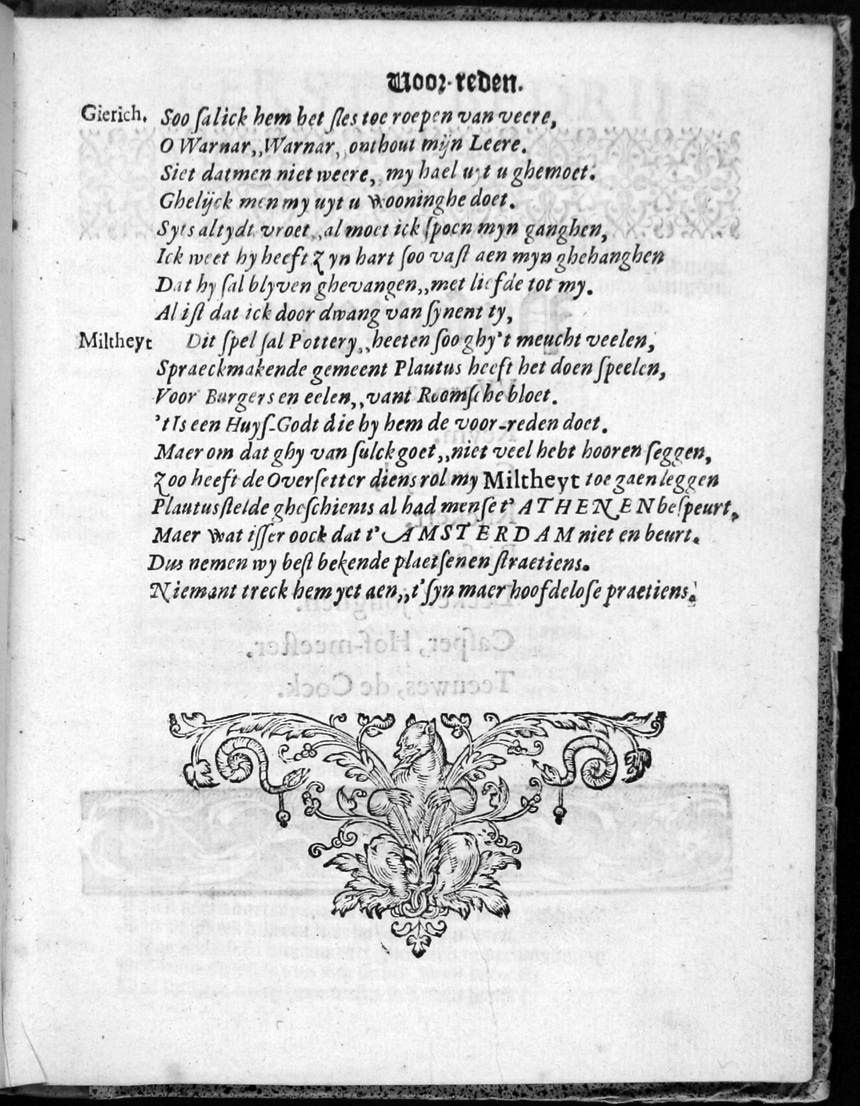 Voor-reden.
Gierich. Soo salick hem het sles toe roepen van veere,
O Warnar,, Warnar, onthout mijn Leere.
Siet datmen niet weere,, my hael uyt u ghemoet.
Ghelijck men my uyt u wooninghe doet.
Syts altydt vroet,, al moet ick spoen myn ganghen,
Ick weet hy heeft zyn hart soo vast aen myn ghehanghen
Dat hy sal blyven ghevangen,, met liefde tot my.
Al ist dat ick door dwang van synent ty,
Miltheyt Dit spel sal Pottery,, heeten soo ghy't meucht veelen,
Spraeckmakende gemeent Plautus heeft het doen speelen,
Voor Burgers en eelen,, vant Roomsche bloet.
't Is een Huys-Godt die by hem de voor-reden doet.
Maer om dat ghy van sulck goet,, niet veel hebt hooren seggen,
Zoo heeft de Oversetter diens rol my Miltheyt toe gaen leggen
Plautus stelde gheschients al had mense t' ATHENEN bespeurt,
Maer wat isser oock dat t' AMSTERDAM niet en beurt.
Dus nemen wy best bekende plaetsen en straetiens.
Niemant treck hem yet aen,, t'syn maer hoofdelose praetiens.